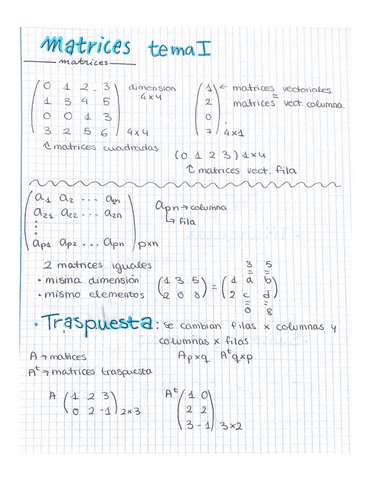 Matrices tema I
matrices
( 0 1 2 3 ) dimension
( 1 3 4 5 ) 4x4
( 0 0 1 3 )
( 3 2 5 6 ) 4x4
↑ matrices cuadradas
( 1 ) ← matrices vectoriales
( 2 ) = matrices vect. columna
( 0 )
( 7 ) 4x1
(0 1 2 3) 1x4
↑ matrices vect. fila
( a₁ a₂ ... aₙ )
( a₂₁ a₂₂ ... a₂ₙ )
⋮
( aₚ₁ aₚ₂ ... aₚₙ ) pxn
aₚₙ → columna
↳ fila
2 matrices iguales
• misma dimensión
• mismo elementos
3 5
= =
( 1 3 5 ) = ( 1 a b )
( 2 0 8 ) ( 2 c d )
= =
0 8
• Traspuesta: se cambian filas x columnas y
columnas x filas
A → matrices Apxq Aᵗqxp
Aᵗ → matrices traspuesta
A ( 1 2 3 )
( 0 2 -1 ) 2x3
Aᵗ ( 1 0 )
( 2 2 )
( 3 -1 ) 3x2